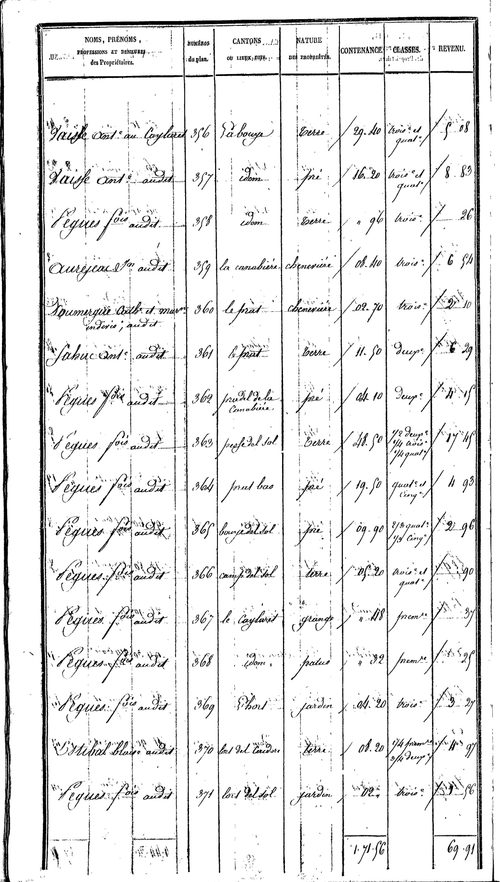 NOMS, PRÉNOMS, PROFESSIONS ET DEMEURES des Propriétaires. NUMÉROS du plan. CANTONS OU LIEUX-DITS. NATURE DES PROPRIÉTÉS. CONTENANCE. CLASSES. REVENU.
Vaisse Ant.e au Caylaret 356 Labouye terre 29.40 trois.e et quat.e 5 08
Vaisse Ant.e audit 357 idem pré 16.20 trois.e et quat.e 8 83
Pegues fois audit 358 idem terre " 96 trois.e 26
audit 359 la canabière chenevière 08.40 trois.e 6 54
audit 360 le prat chenevière 02.70 trois.e 2 10
Sahuc Ant.e audit 361 le prat terre 11.50 deux.e 6 29
Pegues fois audit 362 pradel de la canabière pré 04.10 deux.e 4 15
Pegues fois audit 363 pesse del sol terre 48.50 1/2 deux.e 1/4 trois.e 1/4 quat.e 17 45
Pegues fois audit 364 prat bas pré 19.50 quat.e et cinq.e 4 93
Pegues fois audit 365 del sol pré 09.90 1/2 quat.e 1/2 cinq.e 2 96
Pegues fois audit 366 camp del sol terre 05.20 trois.e et quat.e 90
Pegues fois audit 367 le Caylaret grange " 48 prem.re 37
Pegues fois audit 368 idem patus " 32 prem.re 25
Pegues fois audit 369 l'hort jardin 04.20 trois.e 3 27
Estibal blaise audit 370 terre 08.20 1/4 prem.re 3/4 deux.e 4 97
Pegues fois audit 371 l'ort del sol jardin 02 " trois.e 1 56
1.71.56 69.91